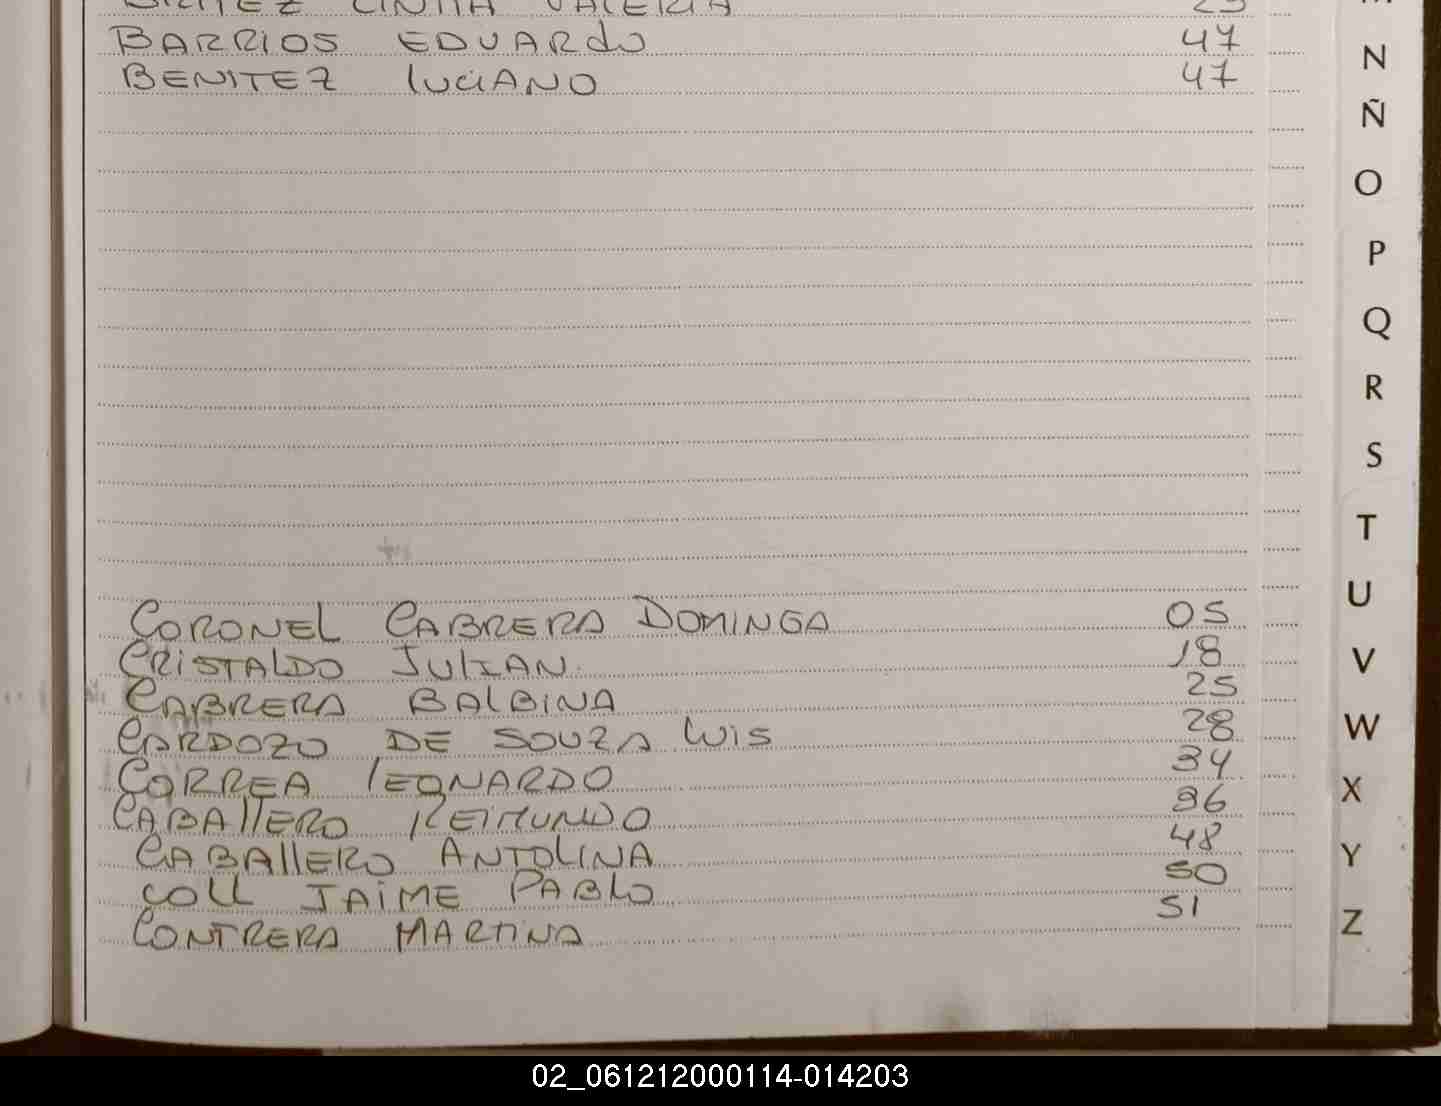 BENITEZ CINTIA VALERIA 25
BARRIOS EDUARDO 47
BENITEZ LUCIANO 47
CORONEL CABRERA DOMINGA 05
CRISTALDO JULIAN 18
CABRERA BALBINA 25
CARDOZO DE SOUZA LUIS 28
CORREA LEONARDO 34
CABALLERO REIMUNDO 36
CABALLERO ANTOLINA 48
COLL JAIME PABLO 50
CONTRERA MARTINA 51
M
N
Ñ
O
P
Q
R
S
T
U
V
W
X
Y
Z
02_061212000114-014203